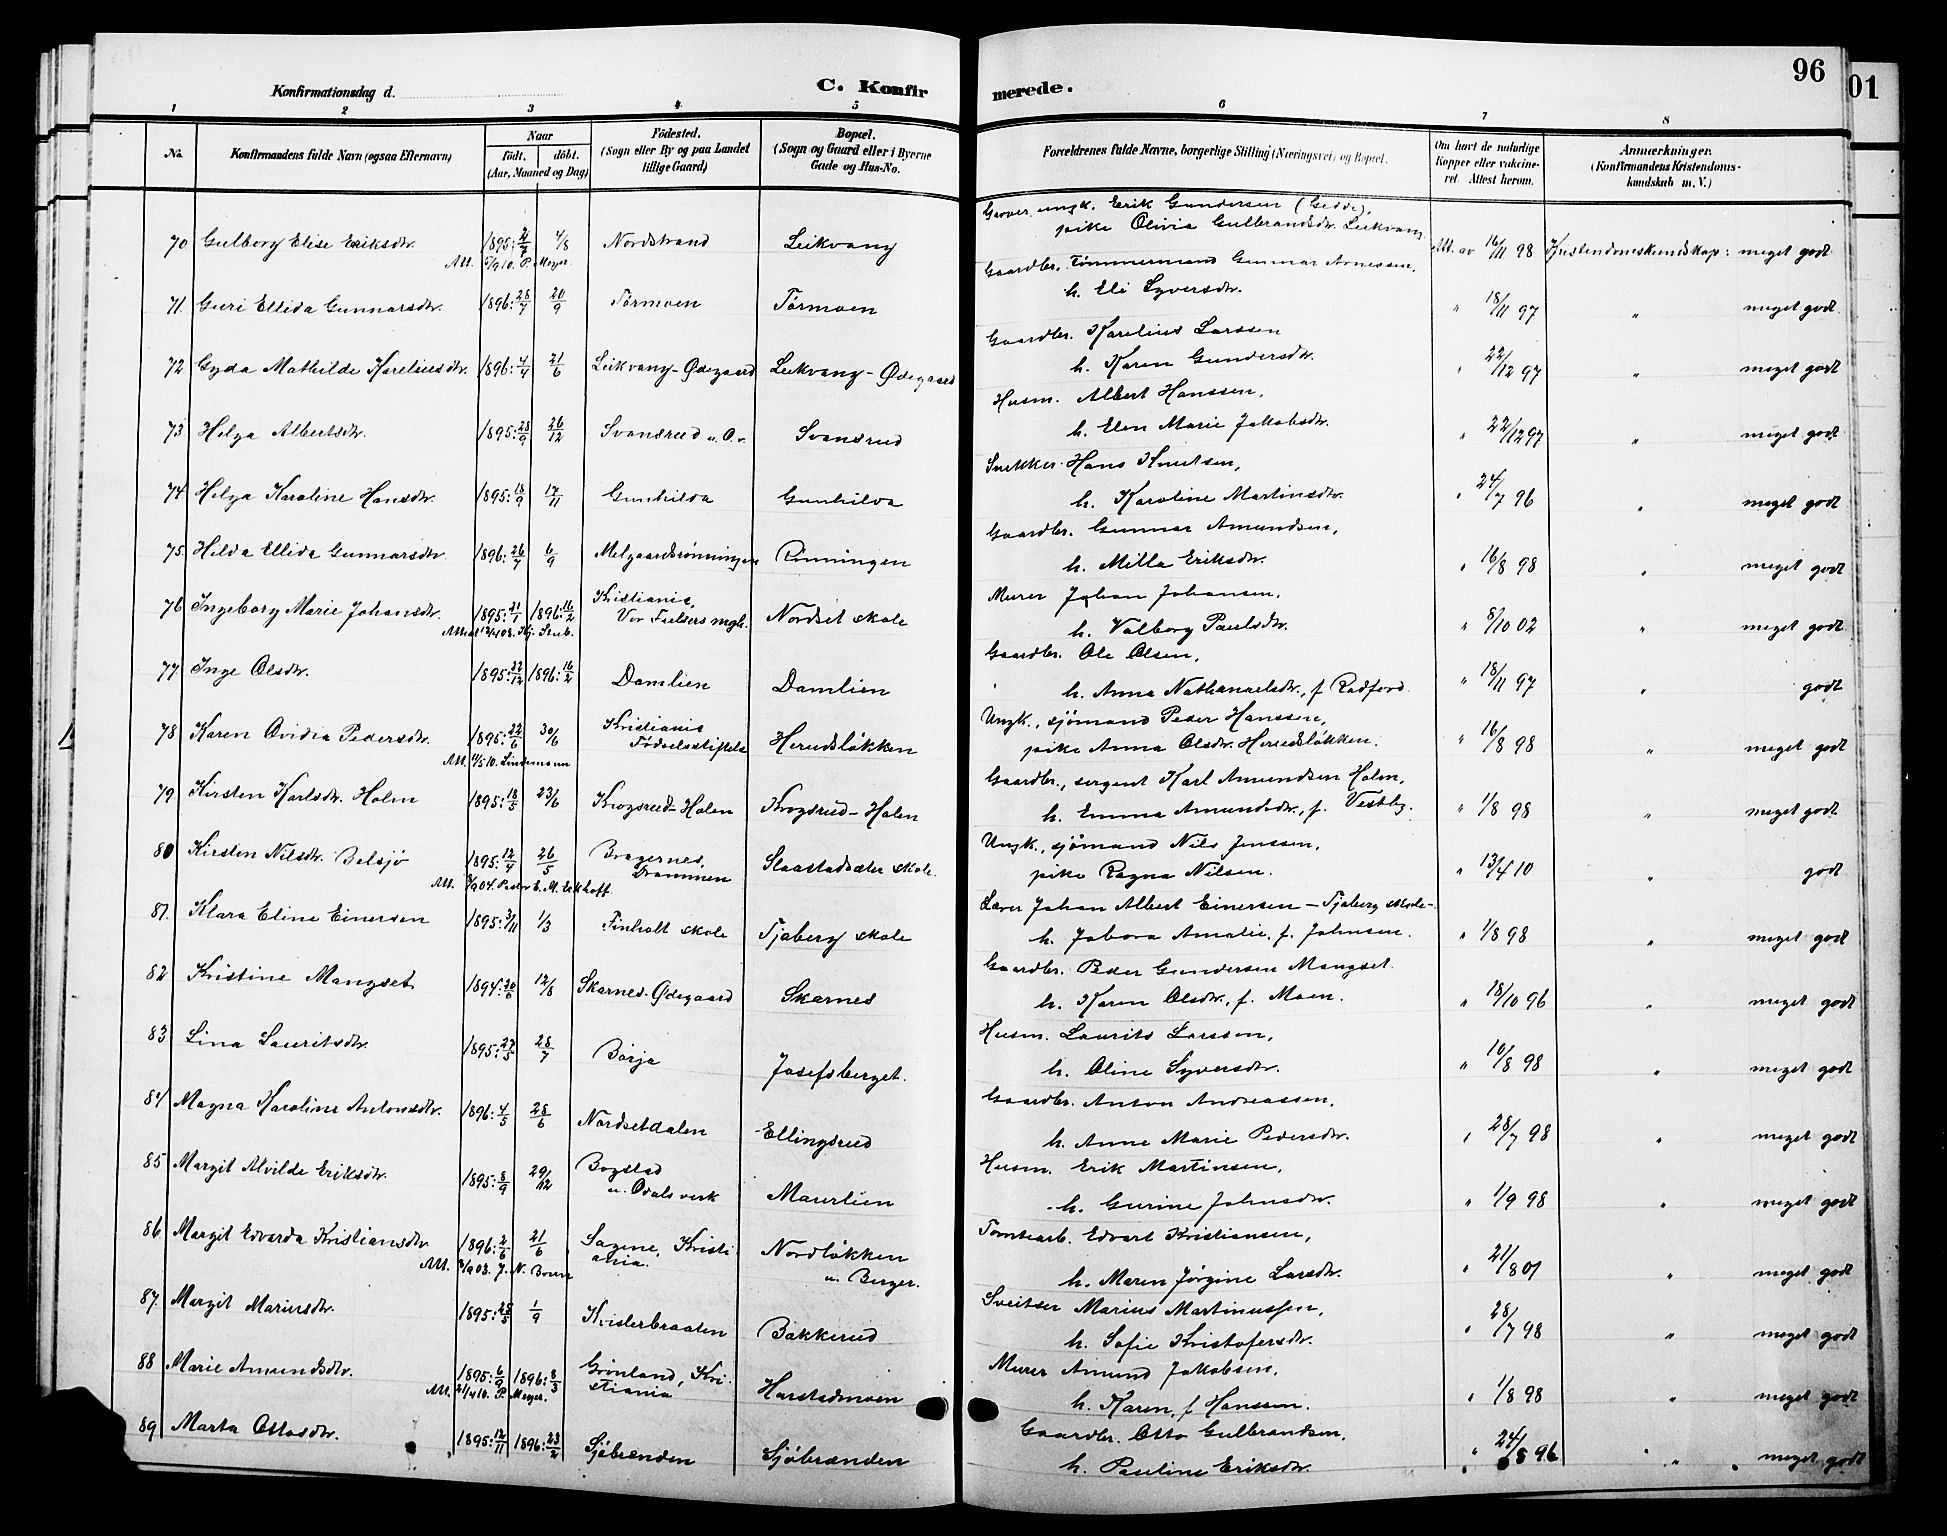 96
01
Konfirmationsdag d.
C. Konfirmerede.
1 2 3 4 5 6 7 8
No. Konfirmandens fulde Navn (ogsaa Efternavn) Naar født. døbt. (Aar, Maaned og Dag) Fødested. (Sogn eller By og paa Landet tillige Gaard) Bopæl. (Sogn og Gaard eller i Byerne Gade og Hus-No. Forældrenes fulde Navne, borgerlige Stilling (Næringsvei) og Bopæl. Om havt de naturlige Kopper eller vaccineret Attest herom. Anmærkninger. (Konfirmandens Kristendomskundskab m. V.)
Graver, ungk. Erik Gundersen (Gedde),
pike Olivia Gulbrandsdtr. Leikvang
70 Gulborg Elise Eriksdtr. 1895: 2/7 4/8 Nordstrand Leikvang Att. av 16/11 98 Kristendomskundskap: meget godt
Att. 5/9 10. P. Meyer.
Gaardbr. Tømmermand Gunnar Arnessen,
h. Eli Syversdtr.
71 Guri Ellida Gunnarsdtr. 1896: 28/7 20/9 Tørmoen Tørmoen " 18/11 97 " meget godt
Gaardbr. Karelius Larssen
h. Karen Gundersdtr.
72 Gyda Mathilde Kareliusdtr. 1896: 4/4 21/6 Leikvang-Ødegaard Leikvang-Ødegaard " 22/12 97 " meget godt
Husm. Albert Hanssen,
h. Elen Marie Jakobsdtr.
73 Helga Albertsdtr. 1895: 28/9 26/12 Svansrud n. O. Svansrud " 22/12 97 " meget godt
Snekker Hans Knutsen,
h. Karoline Martinsdtr.
74 Helga Karoline Hansdtr. 1895: 18/9 17/11 Gunhilda Gunhilda " 24/7 96 " meget godt
Gaardbr. Gunnar Amundsen,
h. Milla Eriksdtr.
75 Hilda Ellida Gunnarsdtr. 1896: 26/7 6/9 Melgaardsrønningen Rønningen " 16/8 98 " meget godt
Murer Johan Johansen,
h. Valborg Paulsdtr.
76 Ingeborg Marie Johansdtr. 1895: 21/1 1896: 16/2 Kristiania, Vor Frelsers mgh. Nordset skole " 8/10 02 " meget godt
Gaardbr. Ole Olsen,
h. Anna Nathanaelsdtr., f. Radford.
77 Inge Olsdtr. 1895: 22/12 1896: 16/2 Damlien Damlien " 18/11 97 " godt
Ungk., sjömand Peder Hanssen,
pike Anna Olsdtr. Herudsløkken.
78 Karen Ovidia Pedersdtr. 1895: 22/6 30/6 Kristiania Fødselsstiftelse Herudsløkken " 16/8 98 " meget godt
Att. 4/5 10. Lindemann
Gaardbr., sergent Karl Amundsen Holm,
h. Emma Amundsdtr., f. Vestby.
79 Kirsten Karlsdtr. Holm 1895: 18/5 23/6 Krogsrud-Holen Krogsrud-Holen " 1/8 98 " meget godt
Ungk., sjömand Nils Jenssen,
pike Ragna Nilsen.
80 Kirsten Nilsdtr. Belsjø 1895: 12/4 26/5 Bragernes, Drammen Slaastadsæter skole. " 13/4 10 " godt
Lærer Johan Albert Einersen - Tjaberg skole-
h. Jabora Amalie, f. Johnsen.
81. Klara Eline Einersen 1895: 3/11 1/3 Finholt skole Tjaberg skole " 1/8 98 " meget godt
Gaardbr. Peder Gundersen Mangset.
h. Karen Olsdtr., f. Moen.
82 Kristine Mangset 1894: 20/6 12/8 Skarnes-Ødegaard Skarnes " 18/10 96 " meget godt
Husm. Laurits Larssen,
h. Oline Syversdtr.
83 Lina Lauritsdtr. 1895: 27/5 28/7 Børja Josefsberget. " 10/8 98 " meget godt
Gaardbr. Anton Andreassen,
h. Anne Marie Pedersdtr.
84 Magna Karoline Antonsdtr. 1896: 4/5 28/6 Nordsetdalen Ellingsrud " 28/7 98 " meget godt
Husm. Erik Martinsen,
h. Gurine Johnsdtr.
85 Margit Alvilde Eriksdtr. 1895: 8/9 29/12 Bogstad n. Odals verk Maurlien " 1/9 98 " meget godt
Tomtearb. Edvart Kristiansen,
h. Maren Jørgine Larsdtr.
86 Margit Edvarda Kristiansdtr. 1896: 2/6 21/6 Sagene, Kristiania. Nordløkken u. Berger. " 21/8 01 " meget godt
Sveitser Marius Martinussen,
h. Sofie Kristofersdtr.
87. Margit Mariusdtr. 1895: 28/5 1/9 Kvislerbraaten Bakkerud " 28/7 98 " meget godt
Murer Amund Jakobsen,
h. Karen, f. Hanssen.
88 Marie Amundsdtr. 1895: 6/9 1896: 8/3 Grønland, Kristiania Harstadmoen " 1/8 98 " meget godt
Att. 21/4 10. P. Meyer.
Gaardbr. Otto Gulbrandsen,
h. Pauline Eriksdtr.
89 Marta Ottosdtr. 1895: 12/11 1896: 23/2 Sjøbrænden Sjøbrænden " 24/8 96 " meget godt